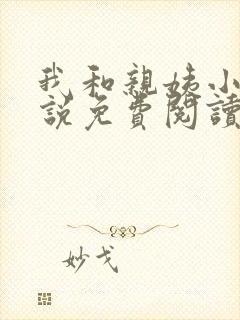 我和親姨小
說免費閱讀
妙戈